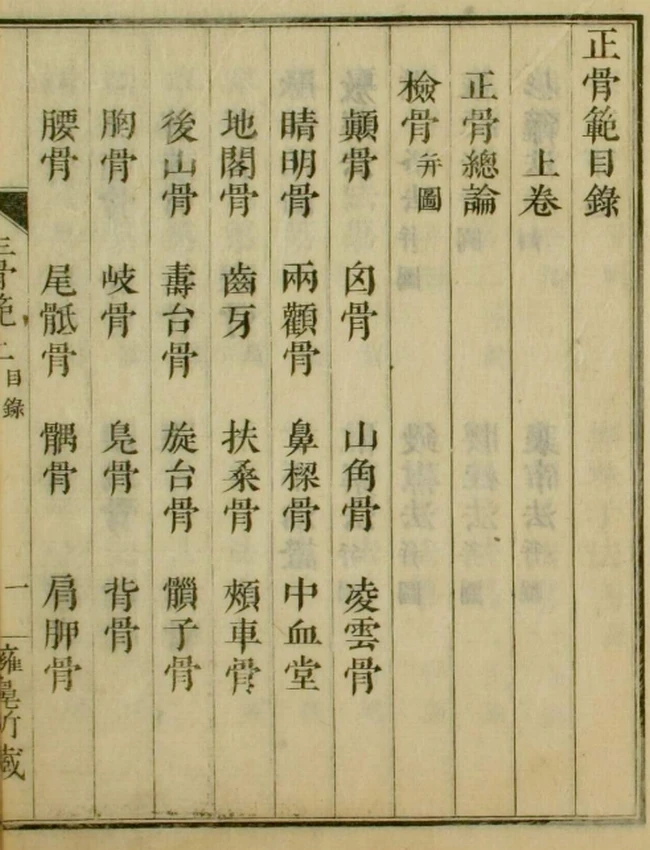 正骨範目錄
上卷
正骨總論
檢骨 并圖
顛骨 囟骨 山角骨 凌雲骨
睛明骨 兩顴骨 鼻梁骨 中血堂
地閣骨 齒牙 扶桑骨 頰車骨
後山骨 壽台骨 旋台骨 髑子骨
胸骨 歧骨 凫骨 背骨
腰骨 尾骶骨 髃骨 肩胛骨
正骨範 目錄 一